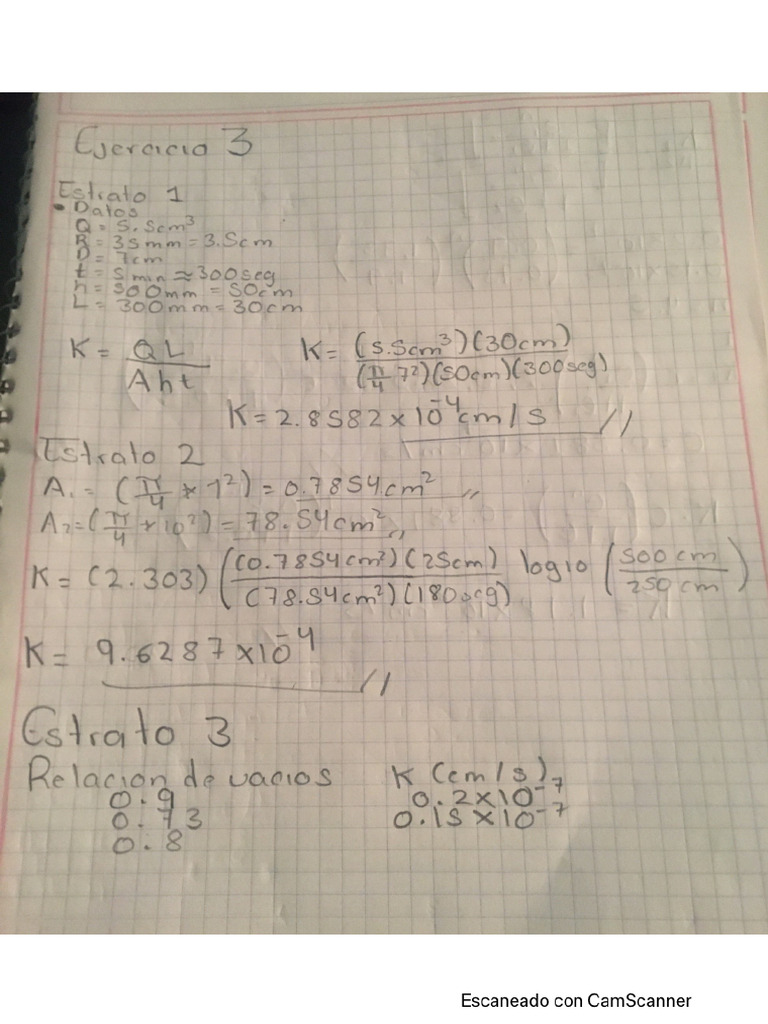 Ejercicio 3
Estrato 1
• Datos
Q = 5.5cm³
R = 35mm = 3.5cm
D = 7cm
t = 5min ≈ 300seg
h = 500mm = 50cm
L = 300mm = 30cm
K = QL / Aht    K = (5.5cm³)(30cm) / (π/4 7²)(50cm)(300seg)
K = 2.8582 x 10⁻⁴ cm/s //
Estrato 2
A₁ = (π/4 * 1²) = 0.7854cm² //
A₂ = (π/4 * 10²) = 78.54cm² //
K = (2.303) ((0.7854cm²)(25cm) / (78.54cm²)(180seg)) log10 (500cm / 250cm)
K = 9.6287 x 10⁻⁴ //
Estrato 3
Relacion de vacios    K (cm/s)
0.9    0.2 x 10⁻⁷
0.73    0.15 x 10⁻⁷
0.8
Escaneado con CamScanner